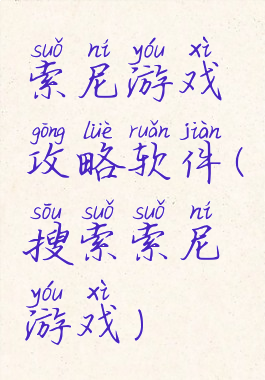 suǒ ní yóu xì
索尼游戏
gōng lüè ruǎn jiàn
攻略软件(
sōu suǒ suǒ ní
搜索索尼
yóu xì
游戏)